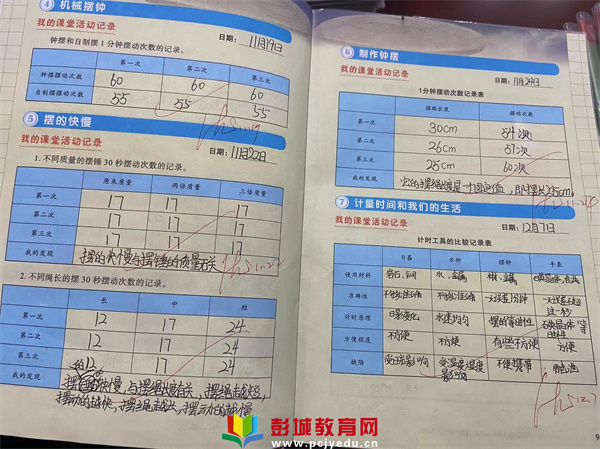 ④ 机械摆钟
我的课堂活动记录
日期：11月19日
钟摆和自制摆1分钟摆动次数的记录。
第一次 第二次 第三次
钟摆摆动次数 60 60 60
自制摆摆动次数 55 55 55
⑤ 摆的快慢
我的课堂活动记录
日期：11月22日
1. 不同质量的摆锤30秒摆动次数的记录。
原来质量 两倍质量 三倍质量
第一次 17 17 17
第二次 17 17 17
第三次 17 17 17
我的发现 摆的快慢与摆锤的质量无关
2. 不同绳长的摆30秒摆动次数的记录。
长 中 短
第一次 12 17 24
第二次 12 17 24
第三次 12 17 24
我的发现 摆的快慢与摆绳长度有关，摆绳越短，
摆动的越快，摆绳越长，摆动的越慢
⑥ 制作钟摆
我的课堂活动记录
日期：11月24日
1分钟摆动次数记录表
摆绳长度 摆动次数
第一次 30cm 54次
第二次 26cm 57次
第三次 25cm 60次
我的发现
⑦ 计量时间和我们的生活
我的课堂活动记录
日期：12月7日
计时工具的比较记录表
日晷 水钟 摆钟 手表
使用材料 岩石、铜 水、金属
准确性 不够准确 不够准确
计时原理 日影变化 水速均匀 摆的等时性
方便程度 不方便 不方便 有些不方便 方便
缺陷 受阳光影响 受温度湿度影响 不便携带
9
彭城教育网
www.pcjyedu.cn